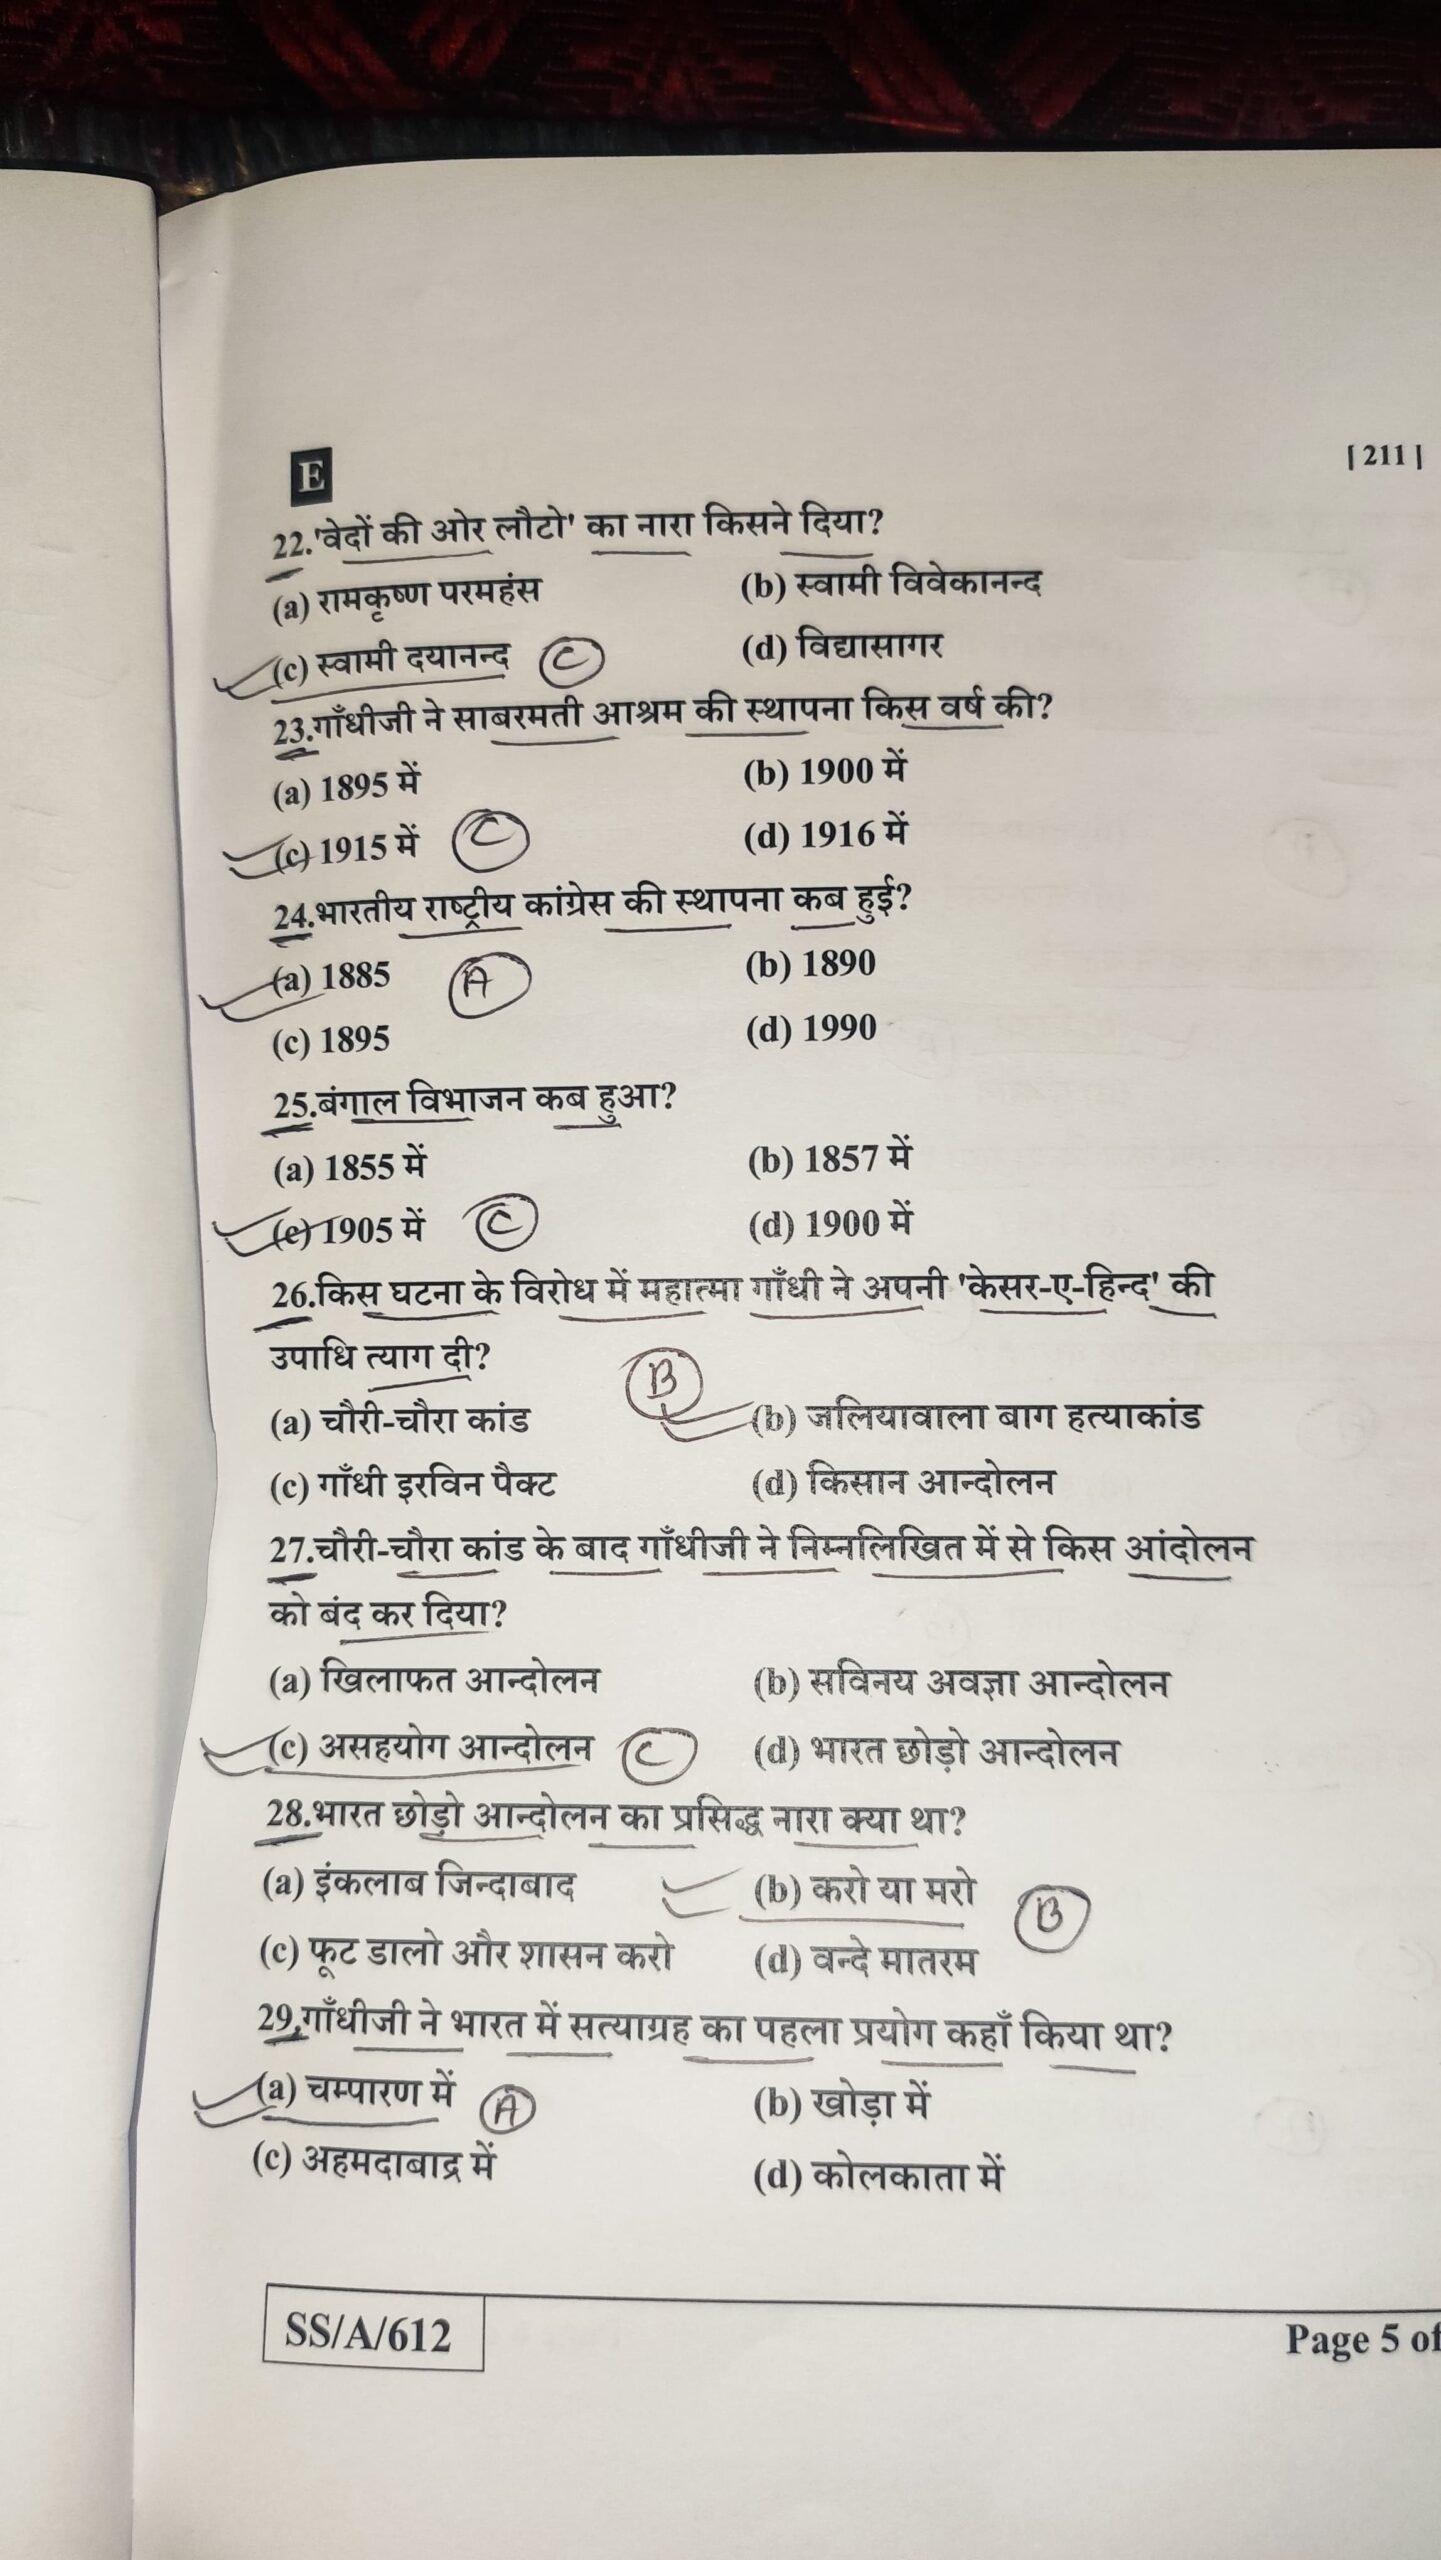 E
[ 211 ]
22.'वेदों की ओर लौटो' का नारा किसने दिया?
(a) रामकृष्ण परमहंस (b) स्वामी विवेकानन्द
(c) स्वामी दयानन्द C (d) विद्यासागर
23.गाँधीजी ने साबरमती आश्रम की स्थापना किस वर्ष की?
(a) 1895 में (b) 1900 में
(c) 1915 में C (d) 1916 में
24.भारतीय राष्ट्रीय कांग्रेस की स्थापना कब हुई?
(a) 1885 A (b) 1890
(c) 1895 (d) 1990
25.बंगाल विभाजन कब हुआ?
(a) 1855 में (b) 1857 में
(c) 1905 में C (d) 1900 में
26.किस घटना के विरोध में महात्मा गाँधी ने अपनी 'केसर-ए-हिन्द' की
उपाधि त्याग दी? B
(a) चौरी-चौरा कांड (b) जलियावाला बाग हत्याकांड
(c) गाँधी इरविन पैक्ट (d) किसान आन्दोलन
27.चौरी-चौरा कांड के बाद गाँधीजी ने निम्नलिखित में से किस आंदोलन
को बंद कर दिया?
(a) खिलाफत आन्दोलन (b) सविनय अवज्ञा आन्दोलन
(c) असहयोग आन्दोलन C (d) भारत छोड़ो आन्दोलन
28.भारत छोड़ो आन्दोलन का प्रसिद्ध नारा क्या था?
(a) इंकलाब जिन्दाबाद (b) करो या मरो B
(c) फूट डालो और शासन करो (d) वन्दे मातरम
29.गाँधीजी ने भारत में सत्याग्रह का पहला प्रयोग कहाँ किया था?
(a) चम्पारण में A (b) खोड़ा में
(c) अहमदाबाद्र में (d) कोलकाता में
SS/A/612
Page 5 of